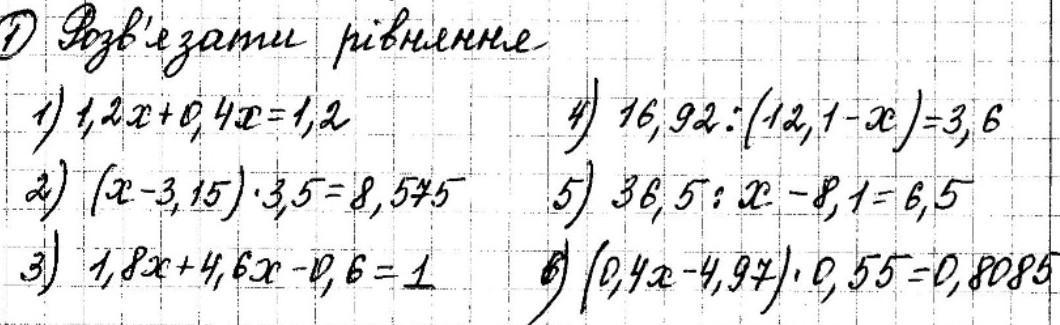 1) Розв'язати рівняння
1) 1,2x+0,4x=1,2
2) (x-3,15)·3,5=8,575
3) 1,8x+4,6x-0,6=1
4) 16,92:(12,1-x)=3,6
5) 36,5:x-8,1=6,5
6) (0,4x-4,97)·0,55=0,8085